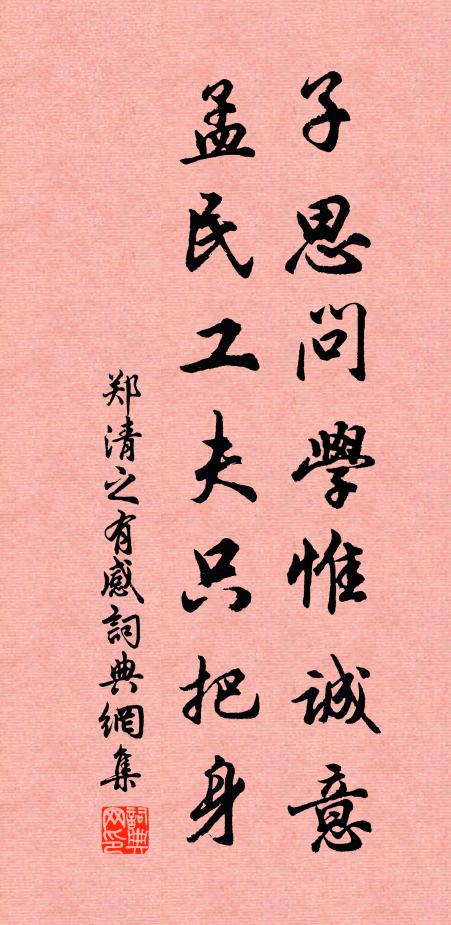 子思问學惟誠意
孟民工夫只把身
郑清之有感詞典網集
詞典网印